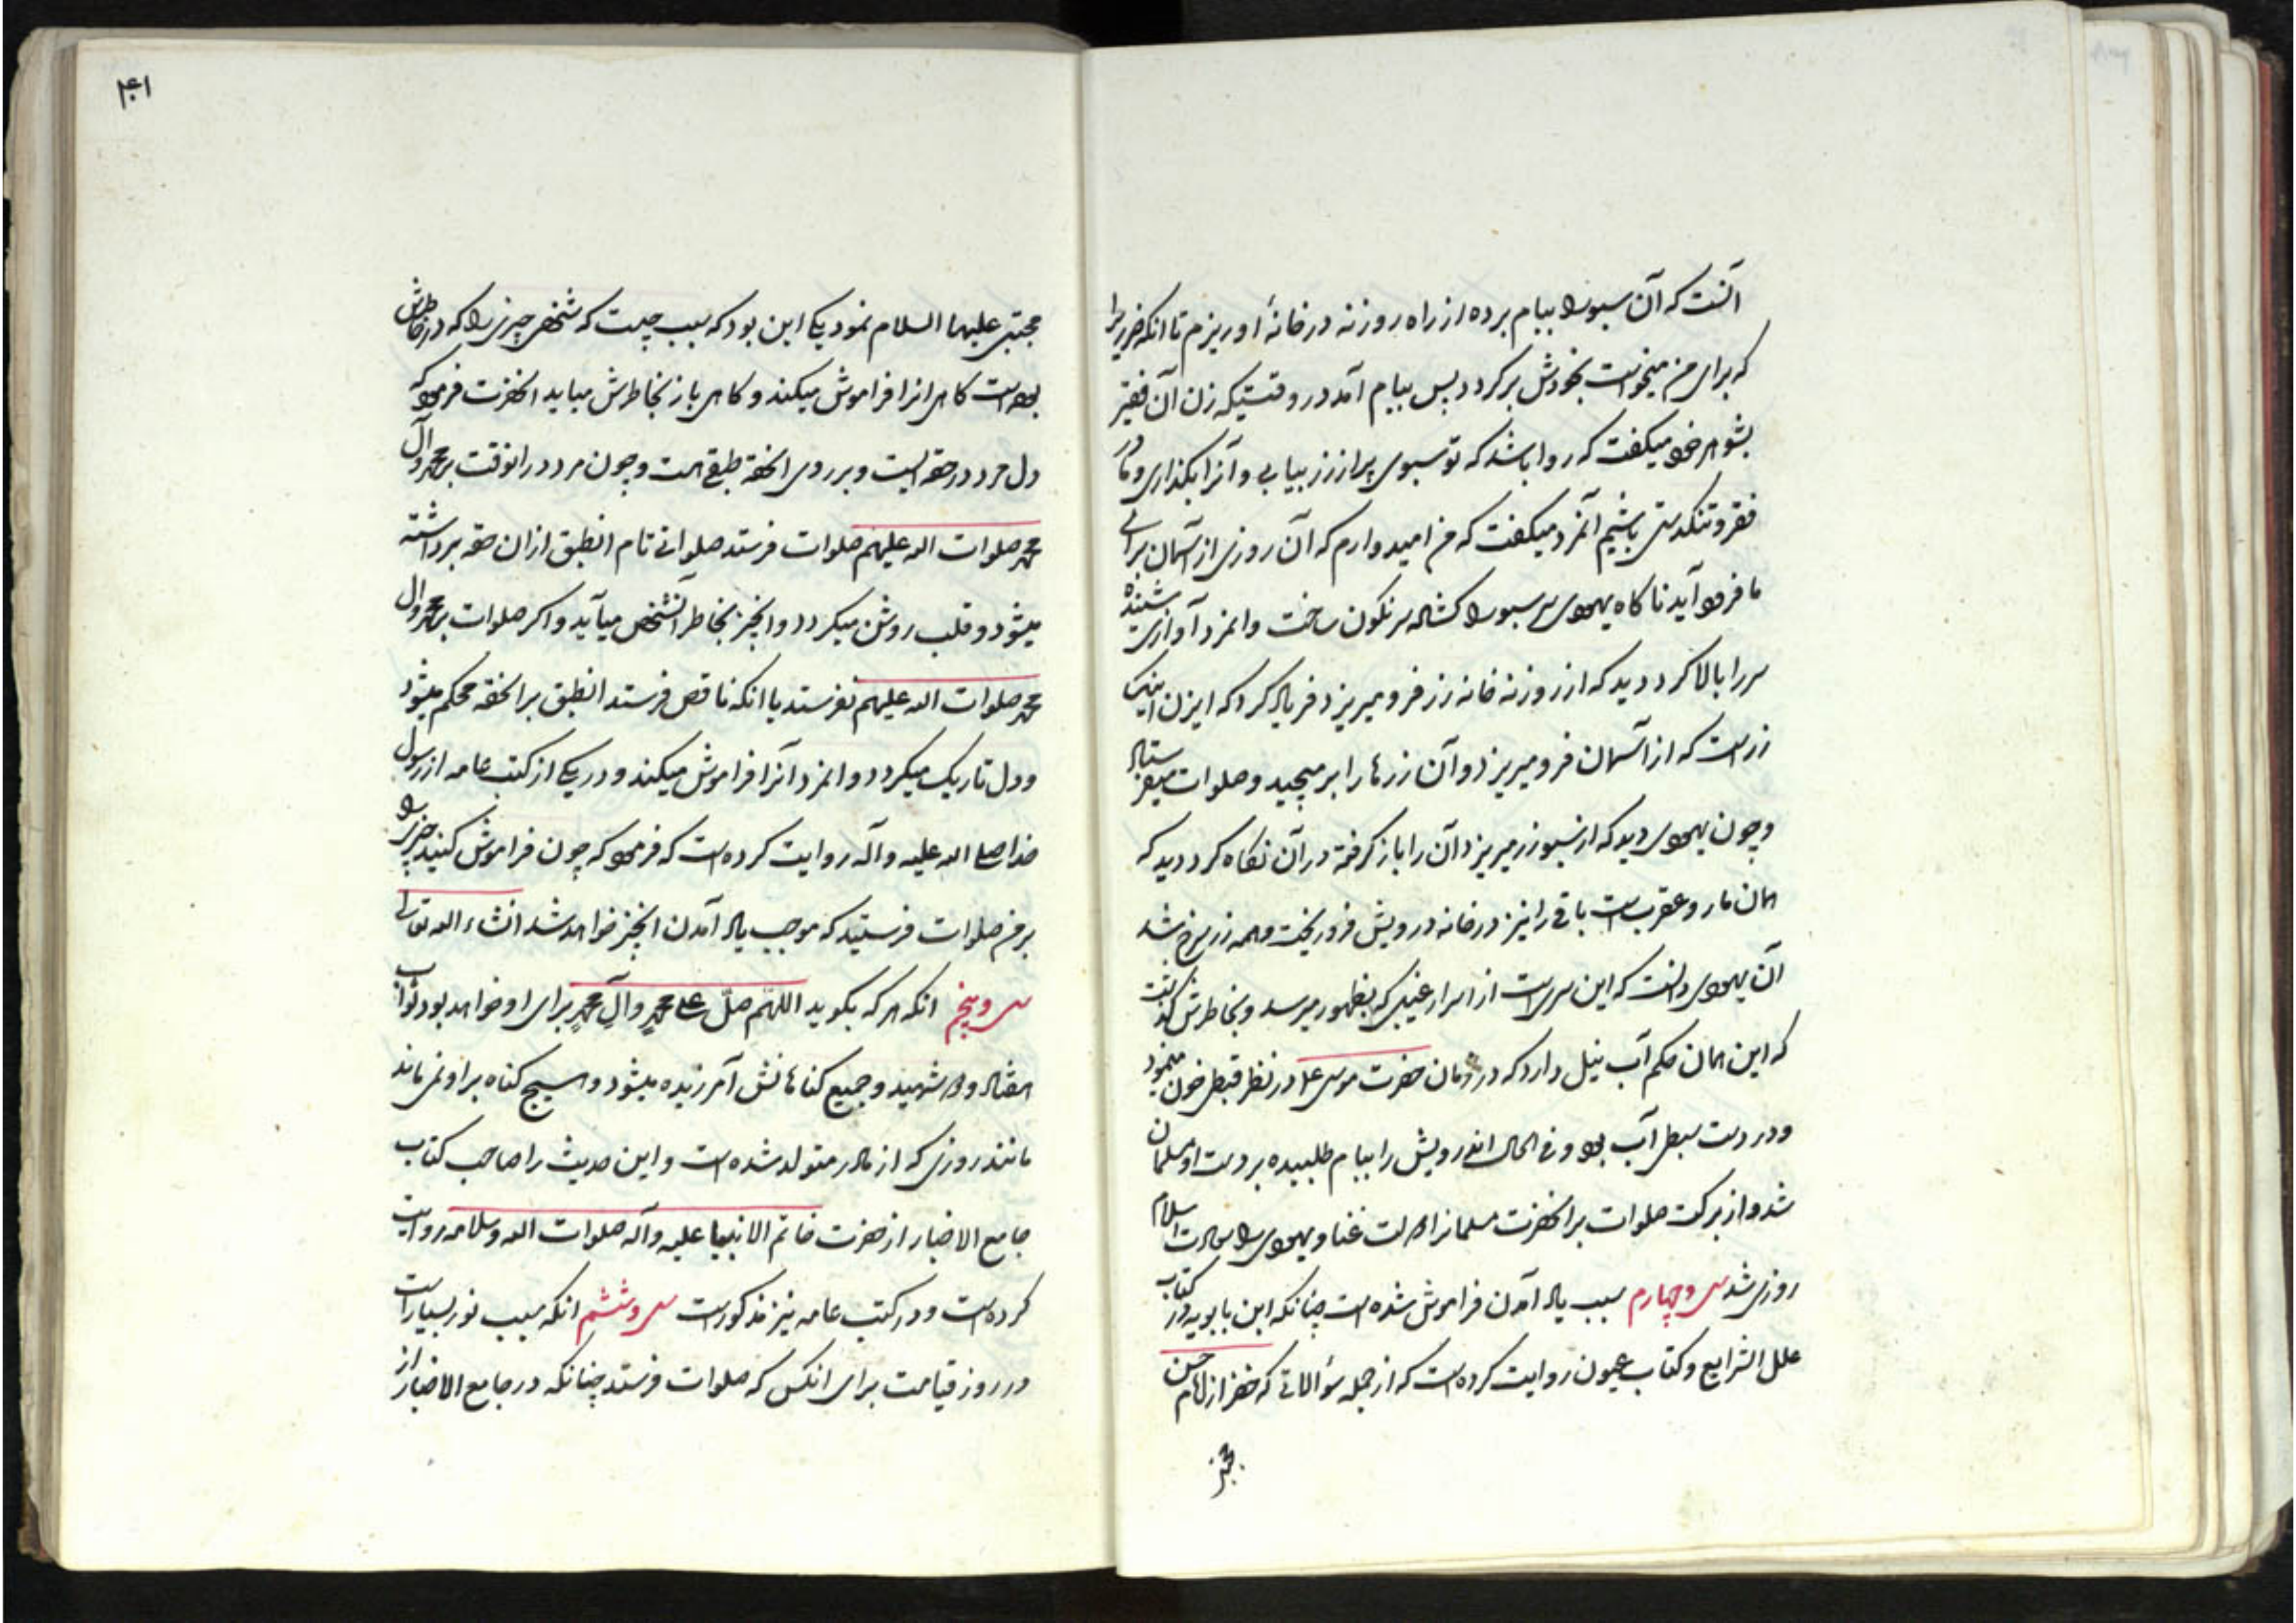 آنست که آن سبو را ببام برده از راه روزنه در خانهٔ او ریزم تا آنکه ضرریرا
که برای من میخواست بخودش برگردد پس ببام آمد در وقتیکه زن آن فقیر
بشوهر خود میگفت که روا باشد که تو سبوی پر از زر بیابی و آنرا بگذاری و ما در
فقر و تنگدستی باشیم آنمرد میگفت که من امیدوارم که آن روزی از آسمان برای
ما فرود آید ناگاه یهودی سر سبو را گشاد سرنگون ساخت و انمرد آوازی شنیده
سر را بالا کرد دید که از روزنه خانه زر فرو میریزد فریاد کرد که ایزن اینک
زرست که از آسمان فرو میریزد و آن زرها را برمیچید و صلوات میفرستاد
و چون یهودی دید که از سبو زر میریزد آن را باز گرفته در آن نگاه کرد دید که
همان مار و عقرب است باقی را نیز در خانه درویش فرو ریخت و همه زر سرخ شد
آن یهودی دانست که این سریست از اسرار غیبی که بظهور میرسد و بخاطرش گذشت
که این همان حکم آب نیل دارد که در زمان حضرت موسی علی در نظر قبطی خون مینمود
و در دست سبطی آب بود و فی الحال اندرویش را ببام طلبیده بر دست او مسلمان
شد و از برکت صلوات بر انحضرت مسلمانرا دولت غنا و یهودی را سعادت اسلام
روزی شد سی و چهارم سبب یاد آمدن فراموش شده است چنانکه ابن بابویه در کتاب
علل الشرایع و کتاب عیون روایت کرده است که از جمله سؤالاتی که خضر از امام حسن
مجتبی
۴۱
مجتبی علیهما السلام نمود یکی این بود که سبب چیست که شخصی چیزی را که در خاطرش
بوده است گاهی انرا فراموش میکند و گاهی باز بخاطرش میاید انحضرت فرمود که
دل مرد در حقه ایست و بر روی انحقه طبقی هست و چون مرد در انوقت بر محمد و آل
محمد صلوات الله علیهم صلوات فرستد صلواتی تام انطبق ازان حقه برداشته
میشود و قلب روشن میگردد و انچیز بخاطر آنشخص میآید و اگر صلوات بر محمد و ال
محمد صلوات الله علیهم نفرستد یا انکه ناقص فرستد انطبق بر انحقه محکم میشود
و دل تاریک میگردد و انمرد آنرا فراموش میکند و در یکی از کتب عامه از رسول
خدا صلی الله علیه و آله روایت کرده است که فرمود که چون فراموش کنید چیزی را
بر من صلوات فرستید که موجب یاد آمدن انچیز خواهد شد انشاء الله تعالی
سی و پنجم انکه هر که بگوید اللهم صل علی محمد وآل محمد برای او خواهد بود ثواب
هفتاد و دو شهید و جمیع گناهانش آمرزیده میشود و هیچ گناه بر او نمی ماند
مانند روزی که از مادر متولد شده است و این حدیث را صاحب کتاب
جامع الاخبار از حضرت خاتم الانبیا علیه و آله صلوات الله وسلامه روایت
کرده است و در کتب عامه نیز مذکور است سی و ششم انکه سبب نور بسیار است
در روز قیامت برای انکس که صلوات فرستد چنانکه در جامع الاخبار از